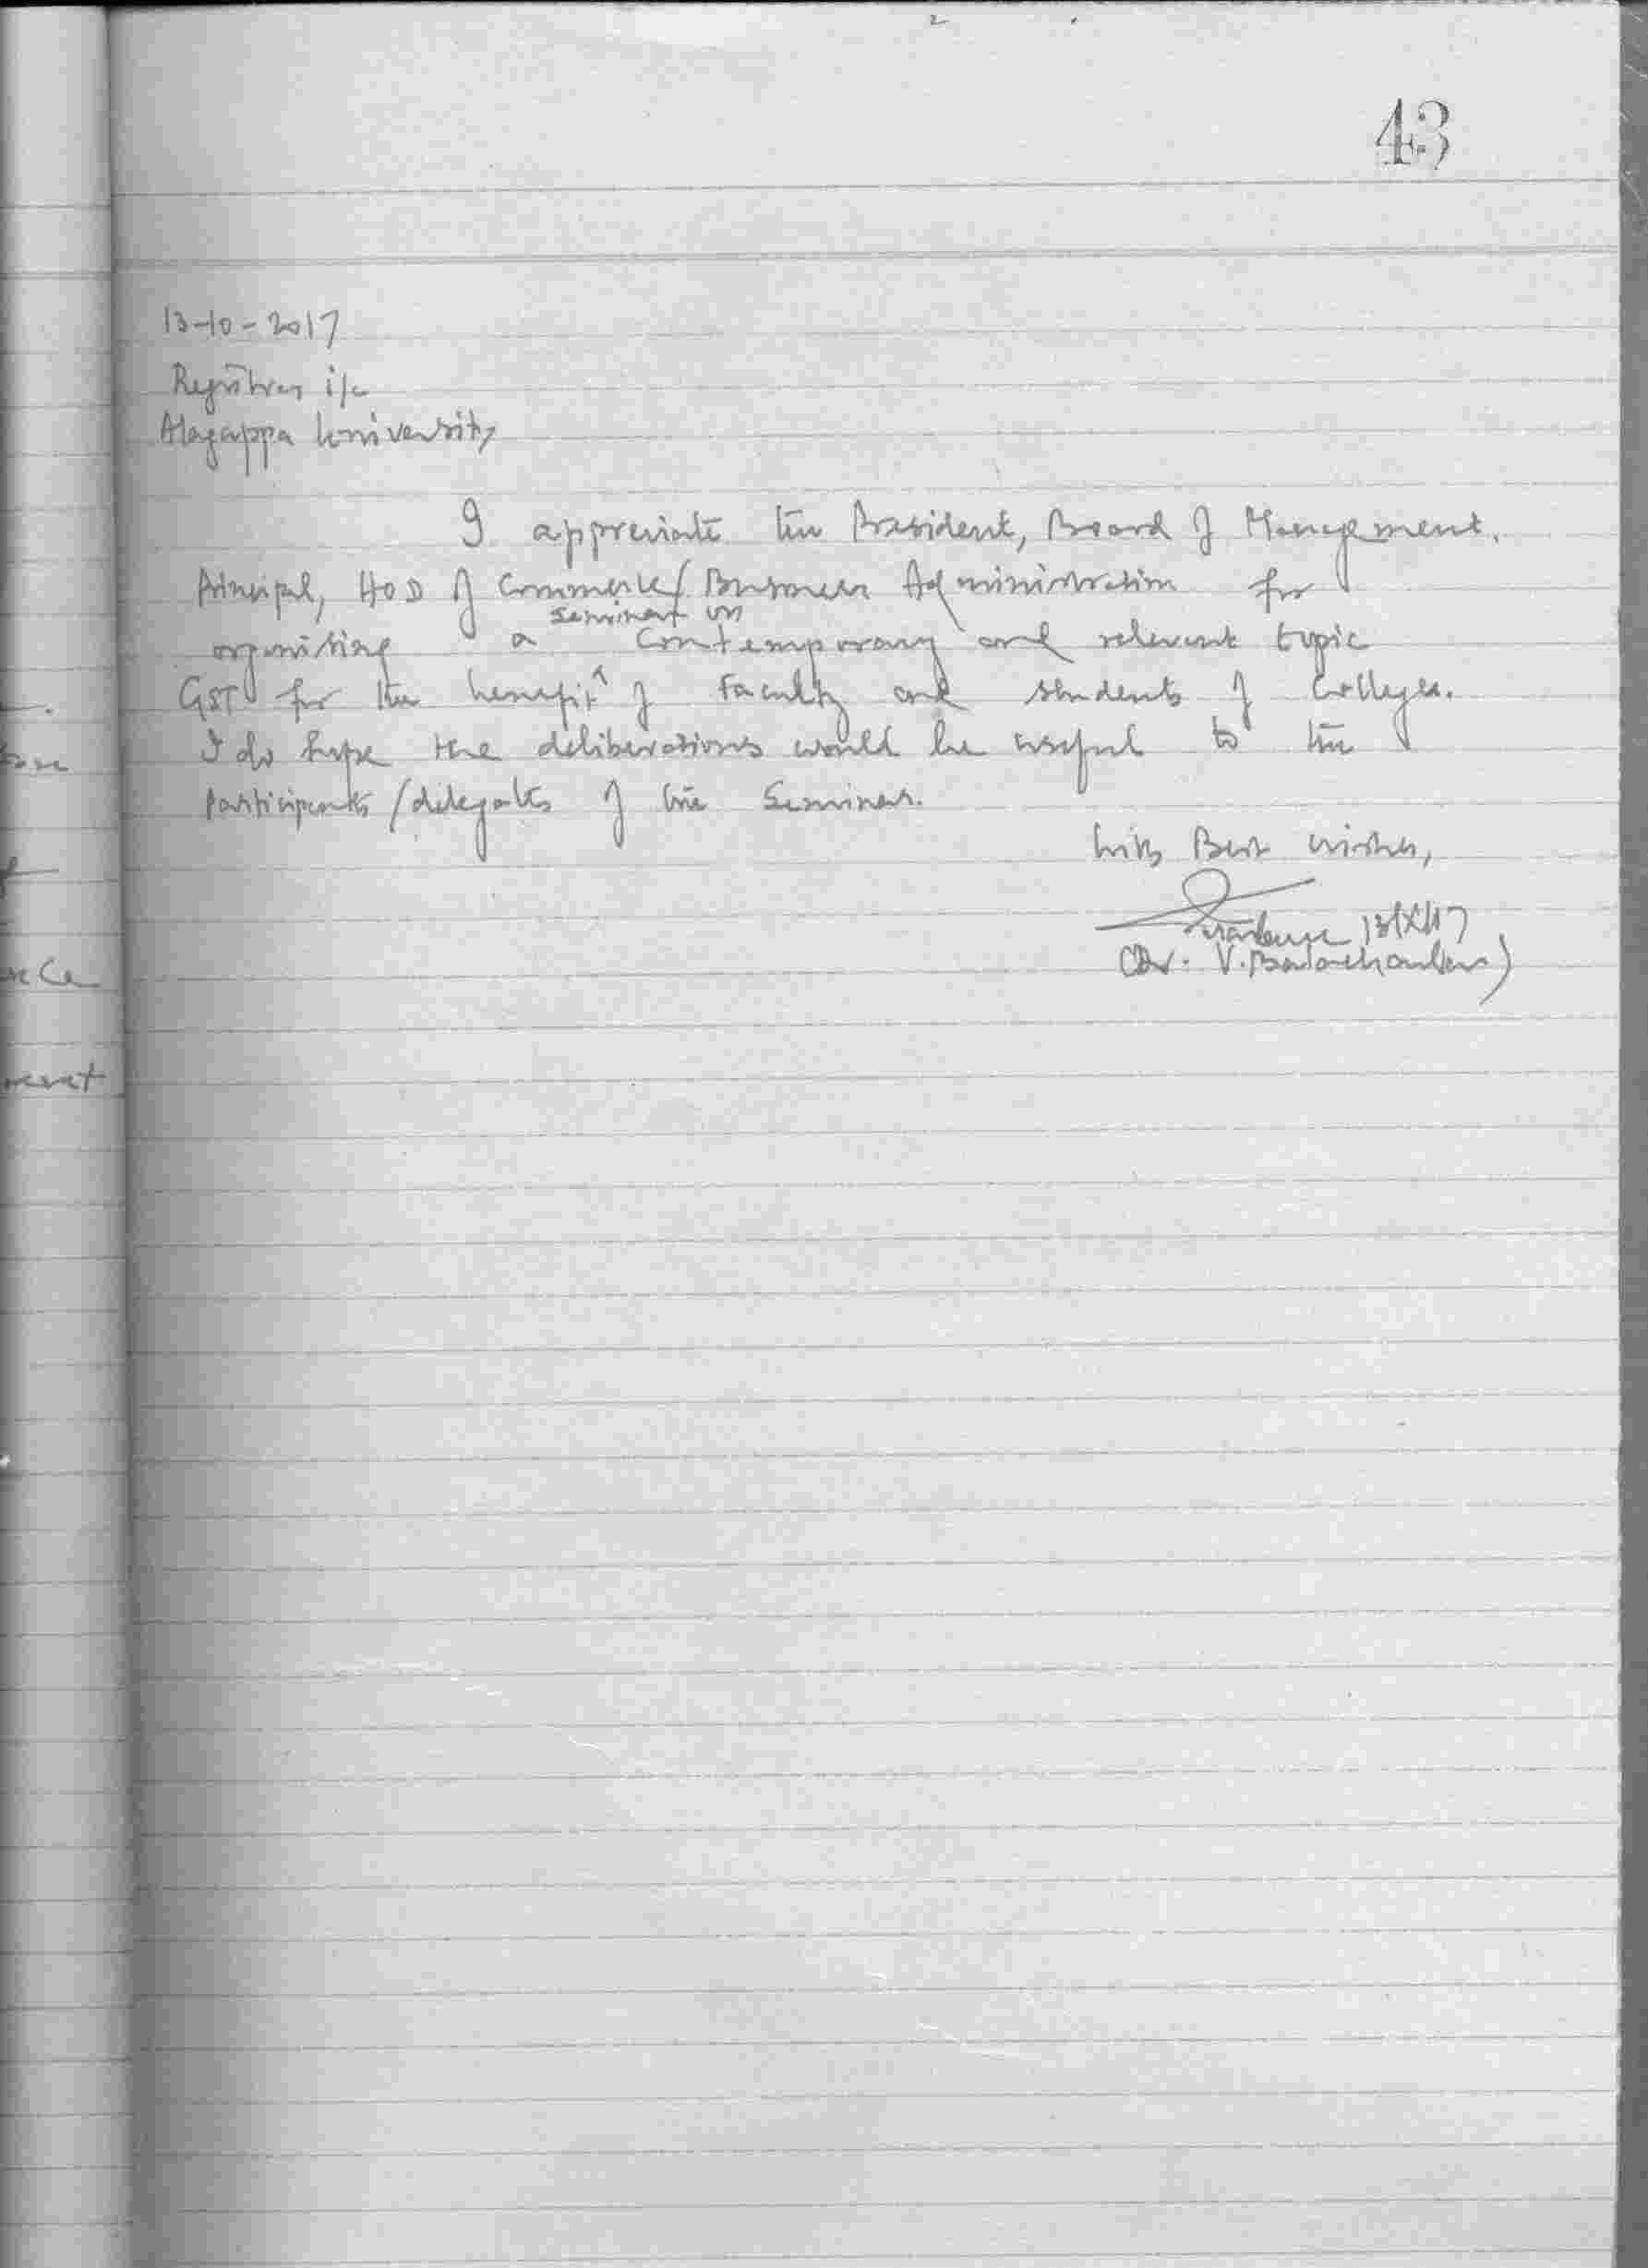 43
13-10-2017
Registrar i/c
Alagappa University
I appreciate the President, Board of Management,
Principal, HOD of Commerce/Business Administration for
organising a seminar on Contemporary and relevant topic
GST for the benefit of Faculty and students of Colleges.
I do hope the deliberations would be useful to the
participants/delegates of the Seminar.
With Best wishes,
13/X/17
(Dr. V. Balachandran)